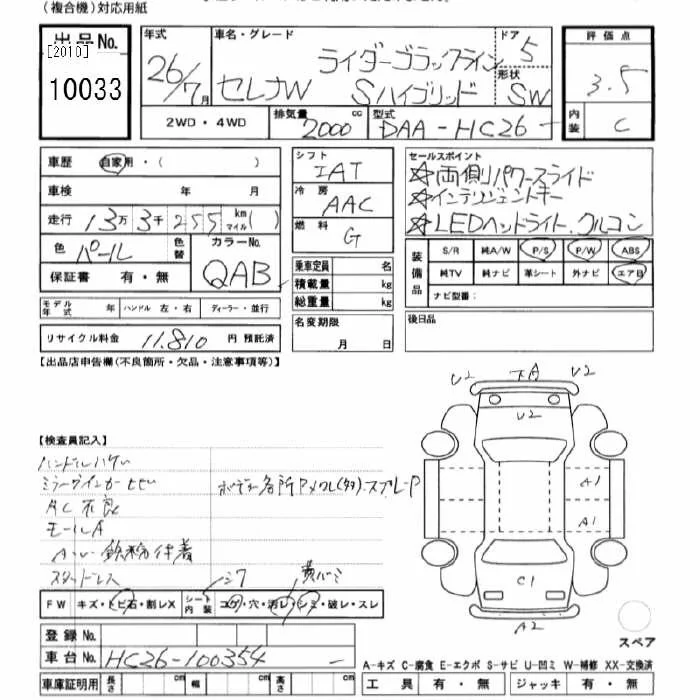 (複合機)対応用紙
出品No.
[2010]
10033
年式
26/7月
車名・グレード
ライダーブラックライン
セレナW Sハイブリッド
ドア
5
形状
SW
評価点
3.5
内装
C
2WD・4WD
排気量
2000
cc
型式
DAA-HC26-
車歴
自家用・( )
車検 年 月
走行 13万3千255 km マイル( )
色
パール
色替
カラーNo.
QAB
保証書 有・無
モデル年式 年
ハンドル 左・右
ディーラー・並行
リサイクル料金 11.810 円 預託済
シフト
IAT
冷房
AAC
燃料
G
乗車定員 名
積載量 kg
総重量 kg
名変期限
月 日
セールスポイント
☆両側パワースライド
☆インテリジェントキー
☆LEDヘッドライト.クルコン
装備品
S/R 純A/W P/S P/W ABS
純TV 純ナビ 革シート 外ナビ エアB
ナビ型番:
後日品
【出品店申告欄(不良箇所・欠品・注意事項等)】
【検査員記入】
ハンドルハゲ
ミラーウインカーヒビ
AC不良
モールA
鉄粉付着
スタッドレス
FW キズ・トビ石・割レX
シート内装
コゲ・穴・汚レ・シミ・破レ・スレ
U2
下A
U2
U2
A1
A1
C1
A2
スペア
登録No.
車台No. HC26-100354 -
車庫証明用 長さ 幅 高さ
A-キズ C-腐食 E-エクボ S-サビ U-凹ミ W-補修 XX-交換済
工具 有・無 ジャッキ 有・無